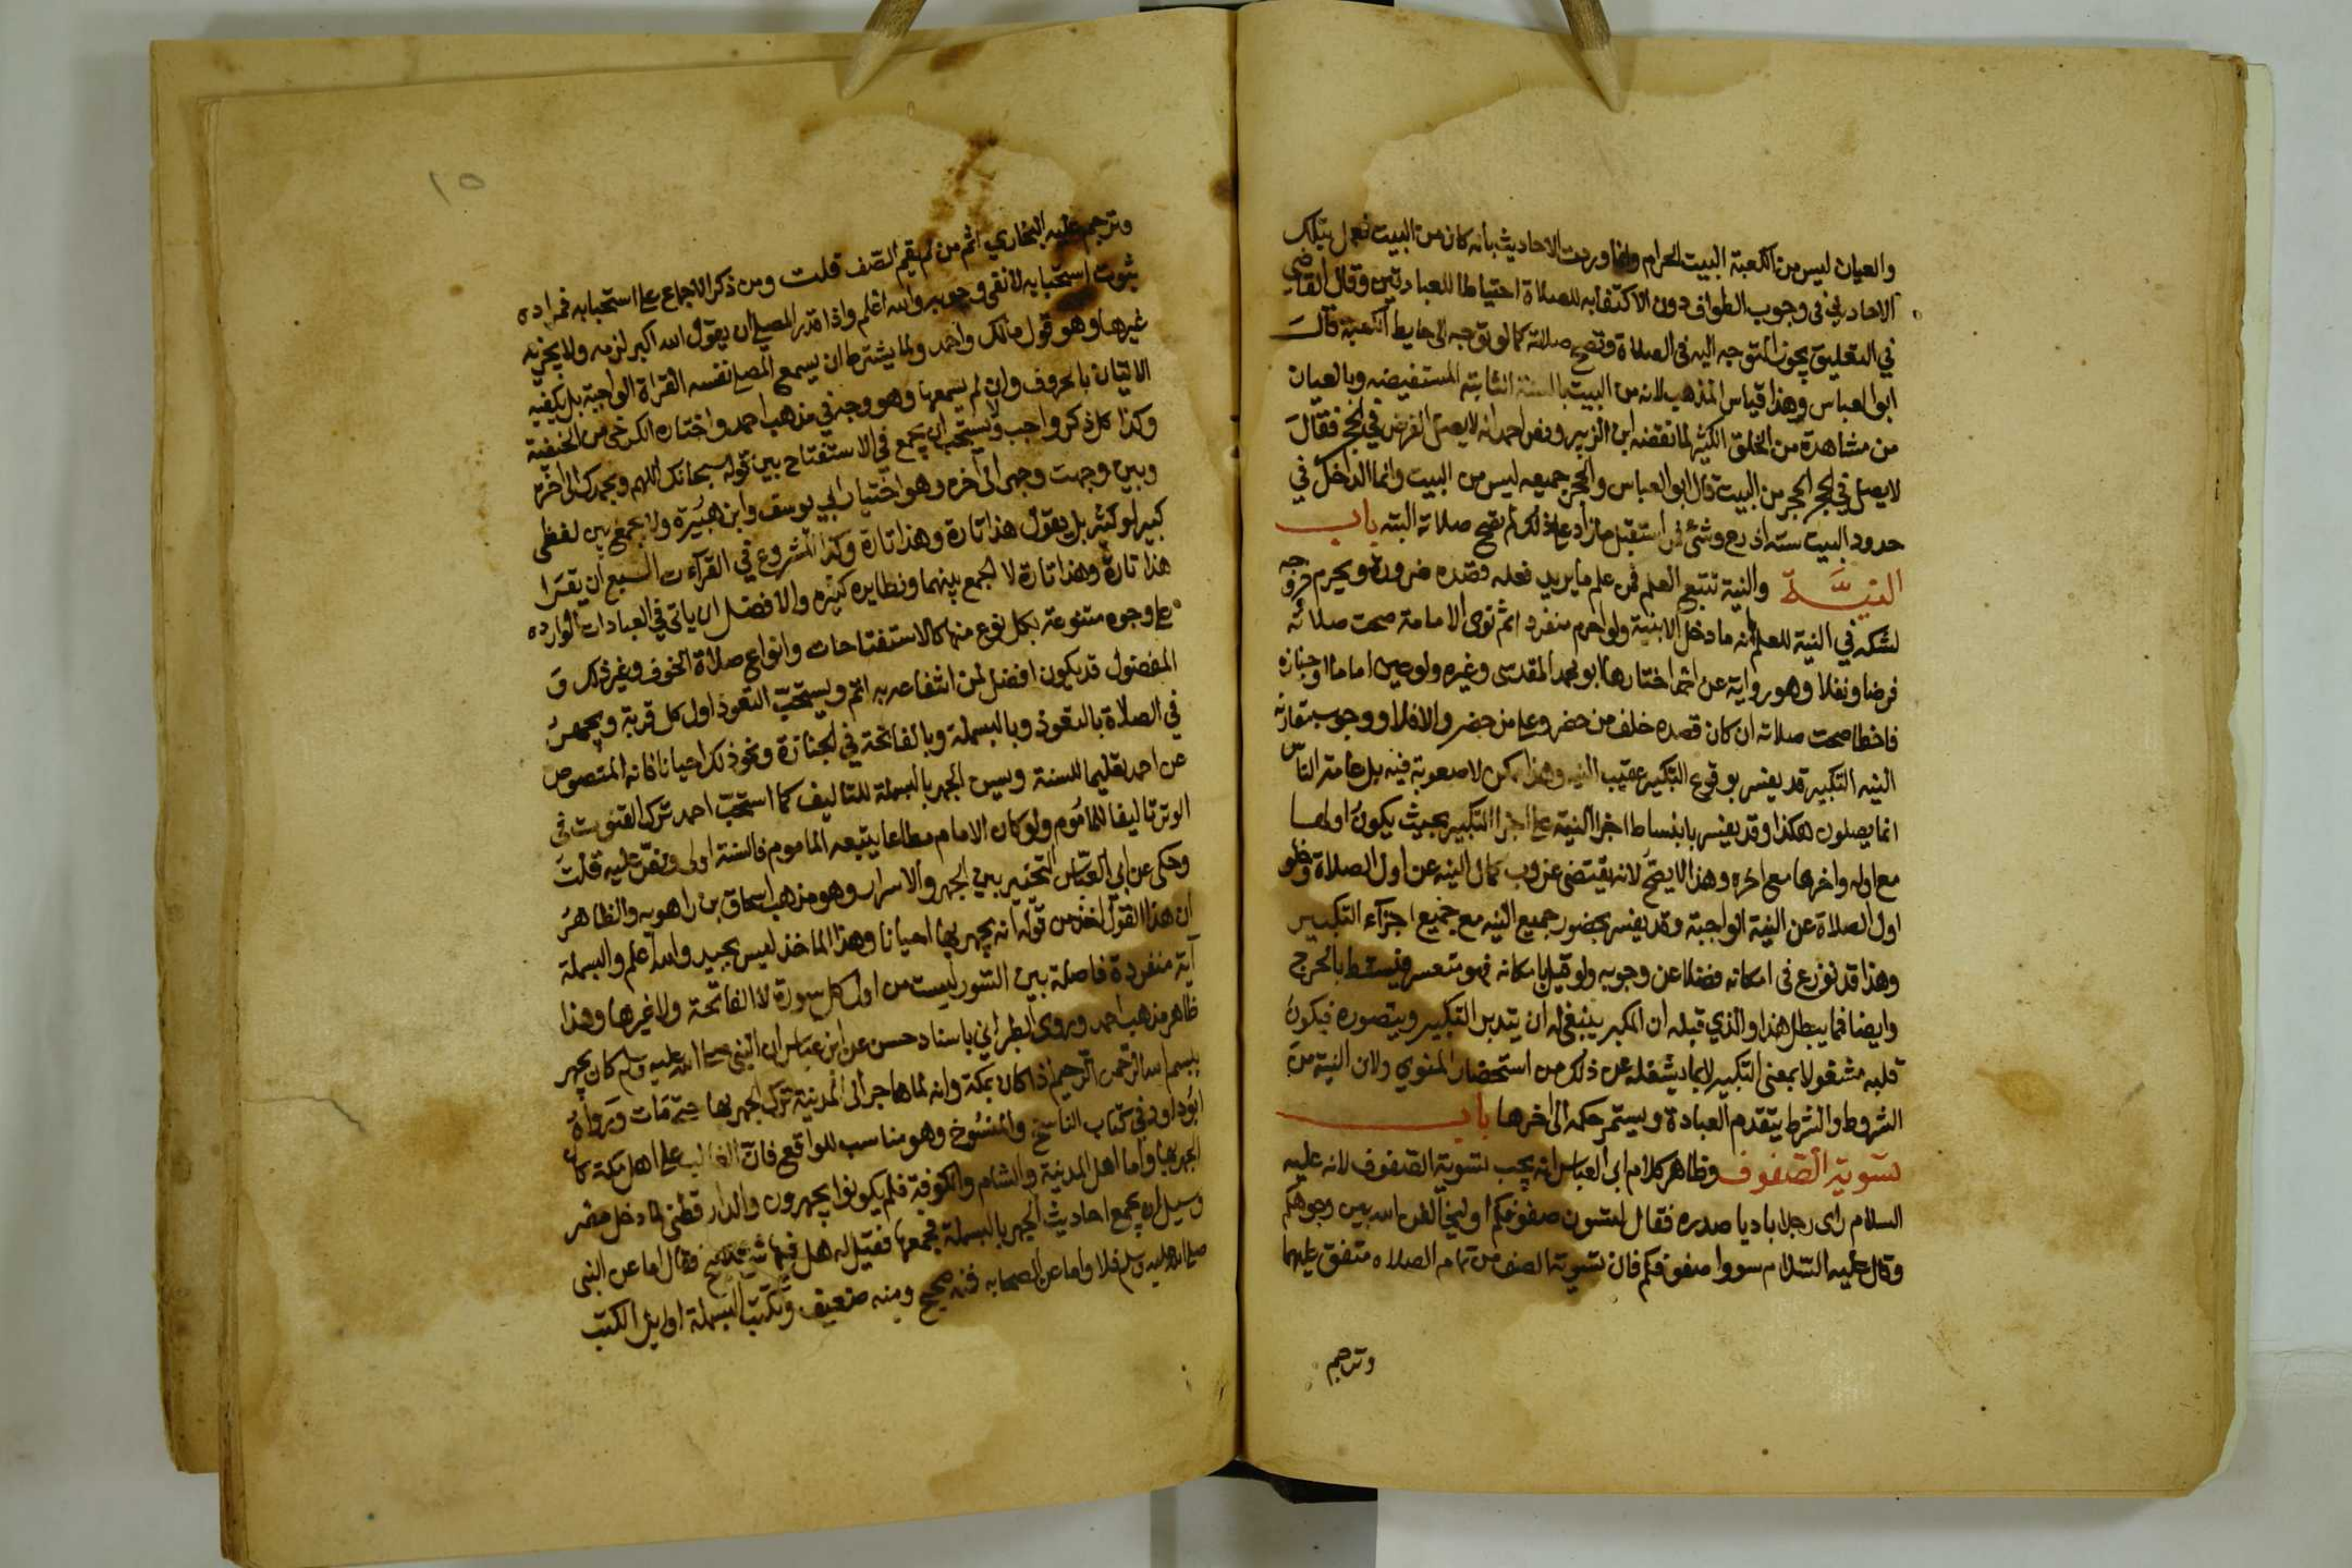 والعيان ليس من الكعبة البيت الحرام وانما وردت الاحاديث بانه كان من البيت فعمل بتلك
الاحاديث في وجوب الطواف دون الاكتفا به للصلاة احتياطا للعبادتين وقال القاضي
في التعليق يجوز التوجه اليه في الصلاة وتصح صلاته كما لو توجه الى حايط الكعبة قال
ابو العباس وهذا قياس المذهب لانه من البيت بالسنة الثابتة المستفيضه وبالعيان
من مشاهدة من الخلق الكثير لما نقضه ابن الزبير ونص احمد انه لا يصلى الفرض في الحجر فقال
لا يصلى في الحجر الحجر من البيت قال ابو العباس والحجر جميعه ليس من البيت وانما الداخل في
حدود البيت سته اذرع وشئ فمن استقبل ما زاد على ذلك لم تصح صلاته البته باب
النيــة والنية تتبع العلم فمن علم ما يريد فعله قصده ضرورة ويحرم خروجه
لشكه في النية للعلم بانه ما دخل الا بنية ولو احرم منفردا ثم نوى الامامة صحت صلاته
فرضا ونفلا وهو رواية عن احمد اختارها ابو محمد المقدسي وغيره ولو عين اماما او جنازه
فاخطا صحت صلاته ان كان قصده خلف من حضر وعلى من حضر والا فلا ووجوب مقارنة
النيه التكبير قد يفسر بوقوع التكبير عقيب النيه وهذا ممكن لا صعوبة فيه بل عامة الناس
انما يصلون هكذا وقد يفسر بانبساط اجزا النية على اجزا التكبير بحيث يكون اولها
مع اوله واخرها مع اخره وهذا لا يصح لانه يقتضي عزوب كمال النيه عن اول الصلاة وخلو
اول الصلاة عن النية الواجبة وقد يفسر بحضور جميع النيه مع جميع اجزآء التكبير
وهذا قد نوزع في امكانه فضلا عن وجوبه ولو قيل بامكانه فهو متعسر فيسقط بالحرج
وايضا فما يبطل هذا والذي قبله ان المكبر ينبغي له ان يتدبر التكبير ويتصوره فيكون
قلبه مشغولا بمعنى التكبير لا بما يشغله عن ذلك من استحضار المنوي ولان النية من
الشروط والشرط يتقدم العبادة ويستمر حكمه الى اخرها باب
تسوية الصفوف وظاهر كلام ابي العباس انه يجب تسوية الصفوف لانه عليه
السلام راى رجلا باديا صدره فقال لتسون صفوفكم او ليخالفن الله بين وجوهكم
وقال عليه السلام سووا صفوفكم فان تسوية الصف من تمام الصلاه متفق عليهما
وترجم
١٥
وترجم عليه البخاري اثم من لم يقم الصف قلت ومن ذكر الاجماع على استحبابه فمراده
ثبوت استحبابه لا نفي وجوبه والله اعلم واذا قدر المصلي ان يقول الله اكبر لزمه ولا يجزيه
غيرها وهو قول مالك واحمد ولا يشترط ان يسمع المصلي نفسه القراة الواجبة بل يكفيه
الاتيان بالحروف وان لم يسمعها وهو وجه في مذهب احمد واختاره الكرخي من الحنفية
وكذا كل ذكر واجب ولا يستحب ان يجمع في الاستفتاح بين قوله سبحانك اللهم وبحمدك الى اخره
وبين وجهت وجهي الى آخره وهو اختيار ابي يوسف وابن هبيرة ولا يجمع بين لفظي
كبير او كثير بل يقول هذا تارة وهذا تارة وكذا المشروع في القرآءت السبع ان يقرا
هذا تارة وهذا تارة لا الجمع بينهما ونظايره كثيره والافضل ان ياتي في العبادات الوارده
على وجوه متنوعة بكل نوع منها كالاستفتاحات وانواع صلاة الخوف وغير ذلك و
المفضول قد يكون افضل لمن انتفاعه به اتم ويستحب التعوذ اول كل قربة ويجهر
في الصلاة بالتعوذ وبالبسملة وبالفاتحة في الجنازة ونحو ذلك احيانا فانه المنصوص
عن احمد تعليما للسنة ويسن الجهر بالبسملة للتاليف كما استحب احمد ترك القنوت في
الوتر تاليفا للماموم ولو كان الامام مطاعا يتبعه الماموم فالسنة اولى ونص عليه قلت
وحكي عن ابي العباس التخيير بين الجهر والاسرار وهو مذهب اسحاق بن راهويه والظاهر
ان هذا القول اخذ من قوله انه يجهر بها احيانا وهذا الماخذ ليس بجيد والله اعلم والبسملة
آية منفردة فاصلة بين السور ليست من اول كل سورة لا الفاتحة ولا غيرها وهذا
ظاهر مذهب احمد وروى الطبراني باسناد حسن عن ابن عباس ان النبي صلى الله عليه وسلم كان يجهر
ببسم الله الرحمن الرحيم اذا كان بمكة وانه لما هاجر الى المدينة ترك الجهر بها حتى مات ورواه
ابو داود في كتاب الناسخ والمنسوخ وهو مناسب للواقع فان الغالب على اهل مكة كان
الجهر بها واما اهل المدينة والشام والكوفة فلم يكونوا يجهرون والدارقطني لما دخل مصر
وسيل ان يجمع احاديث الجهر بالبسملة فجمعها فقيل له هل فيها شئ صحيح فقال اما عن النبي
صلى الله عليه وسلم فلا واما عن الصحابه فمنه صحيح ومنه ضعيف وتكتب البسملة اوايل الكتب